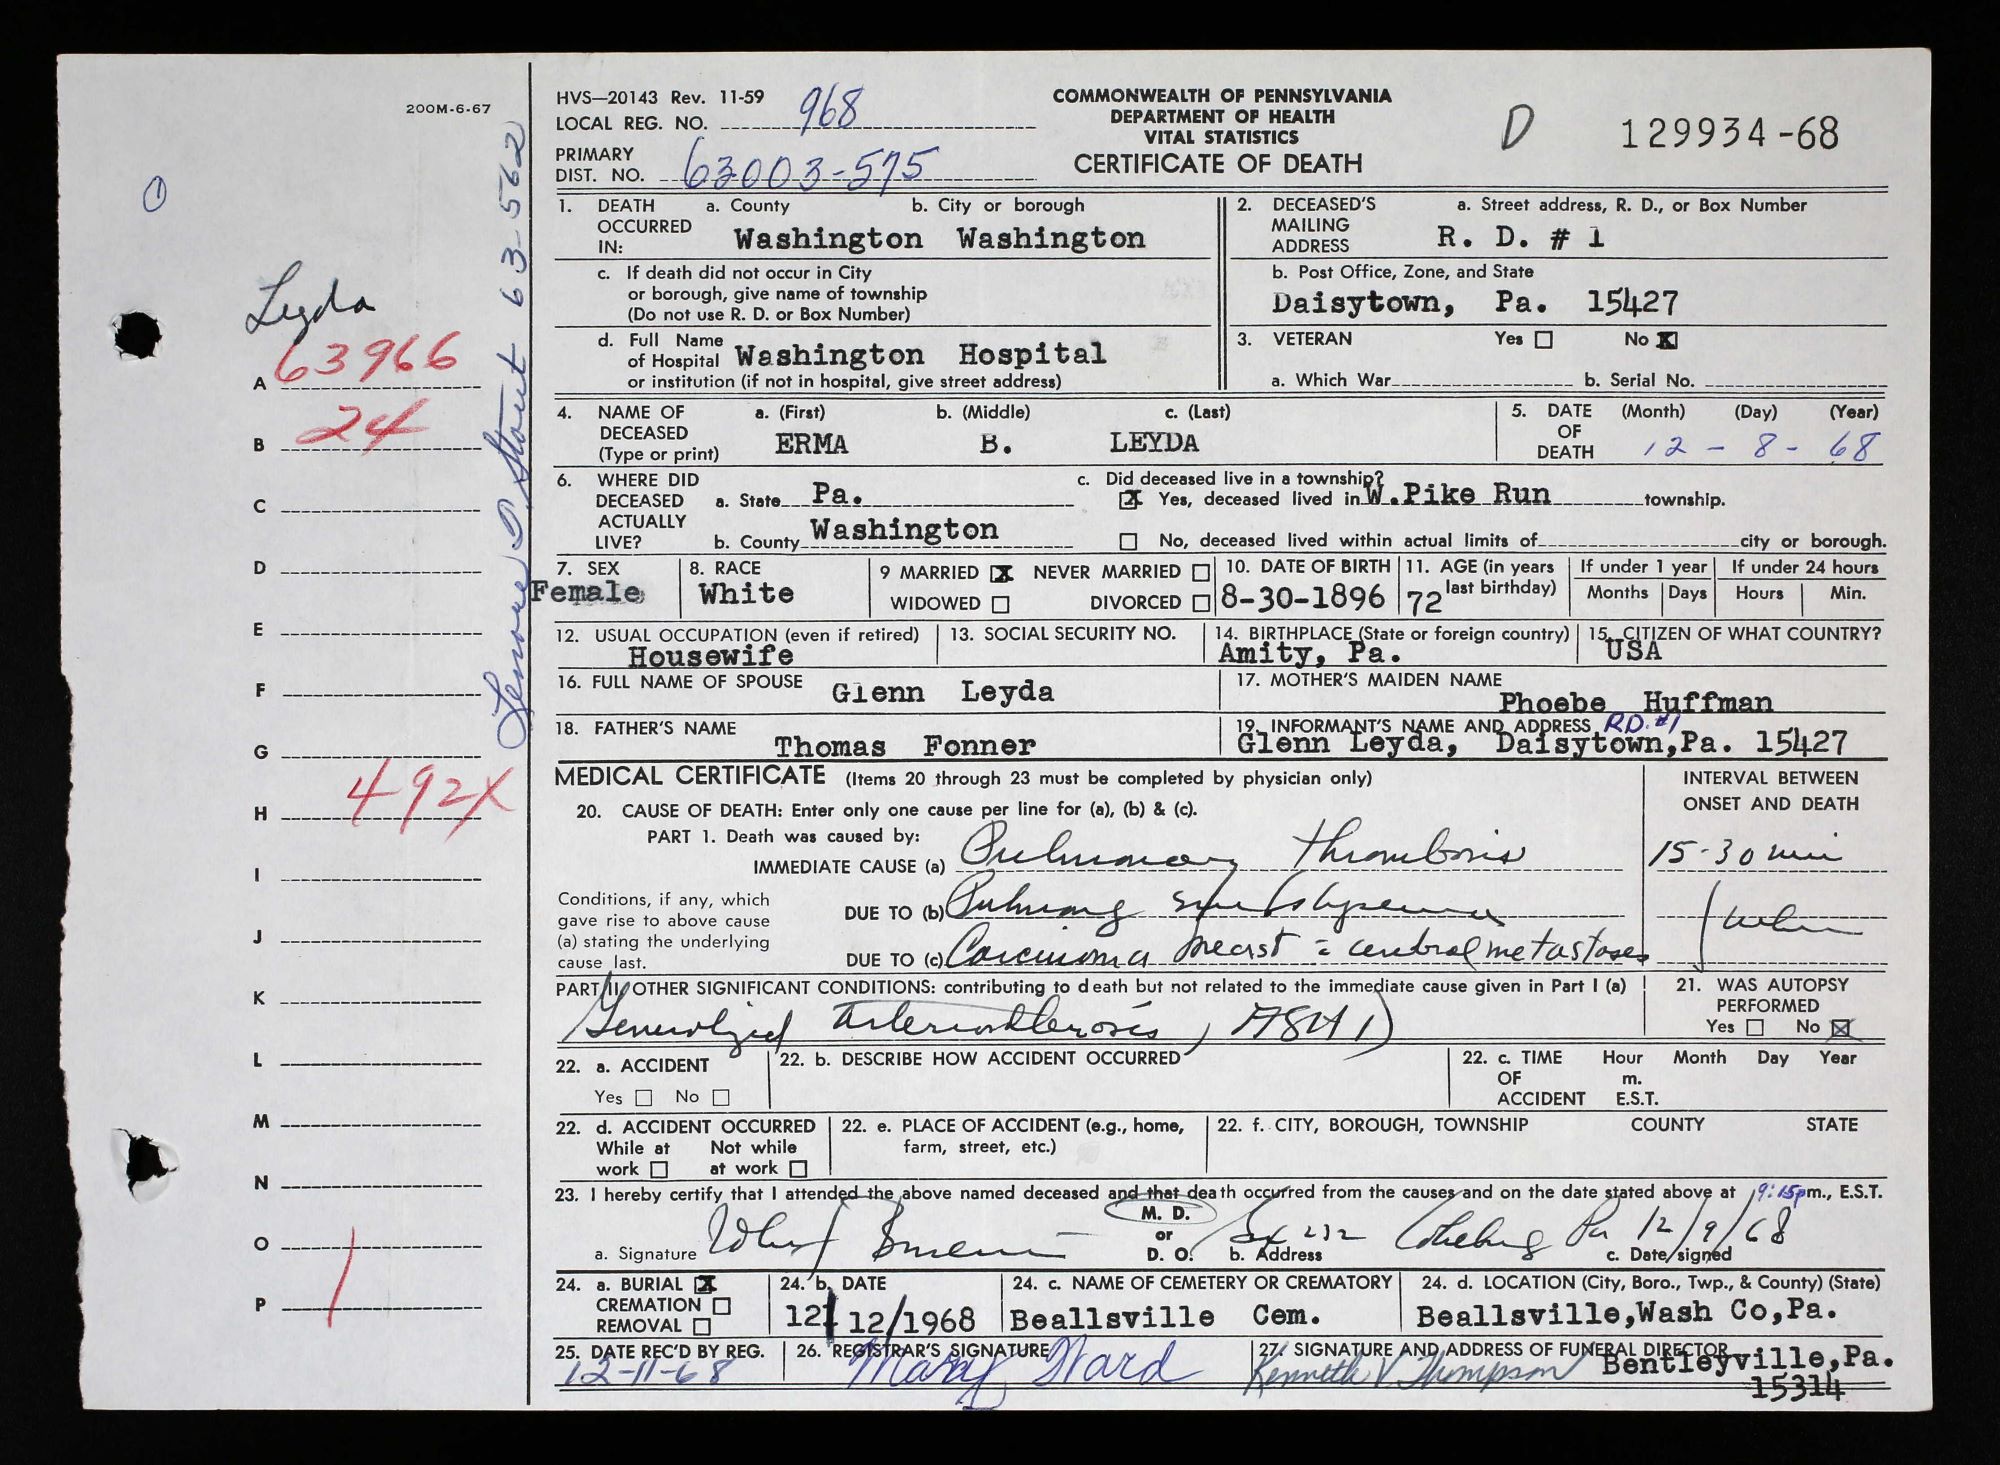 200M-6-67
HVS—20143 Rev. 11-59
LOCAL REG. NO. 968
PRIMARY
DIST. NO. 63003-575
COMMONWEALTH OF PENNSYLVANIA
DEPARTMENT OF HEALTH
VITAL STATISTICS
CERTIFICATE OF DEATH
D
129934-68
Leyda
A 63966
B 24
C
D
E
F
G
H 492X
I
J
K
L
M
N
O
P
63-562
1. DEATH OCCURRED IN: a. County b. City or borough
Washington Washington
c. If death did not occur in City
or borough, give name of township
(Do not use R. D. or Box Number)
d. Full Name
of Hospital Washington Hospital
or institution (if not in hospital, give street address)
2. DECEASED'S MAILING ADDRESS a. Street address, R. D., or Box Number
R. D. # 1
b. Post Office, Zone, and State
Daisytown, Pa. 15427
3. VETERAN Yes No X
a. Which War b. Serial No.
4. NAME OF DECEASED (Type or print) a. (First) b. (Middle) c. (Last)
ERMA B. LEYDA
5. DATE OF DEATH (Month) (Day) (Year)
12 - 8 - 68
6. WHERE DID DECEASED ACTUALLY LIVE? a. State Pa.
b. County Washington
c. Did deceased live in a township?
X Yes, deceased lived in W.Pike Run township.
No, deceased lived within actual limits of city or borough.
7. SEX
Female
8. RACE
White
9 MARRIED X NEVER MARRIED
WIDOWED DIVORCED
10. DATE OF BIRTH
8-30-1896
11. AGE (in years last birthday)
72
If under 1 year
Months Days
If under 24 hours
Hours Min.
12. USUAL OCCUPATION (even if retired)
Housewife
13. SOCIAL SECURITY NO.
14. BIRTHPLACE (State or foreign country)
Amity, Pa.
15. CITIZEN OF WHAT COUNTRY?
USA
16. FULL NAME OF SPOUSE Glenn Leyda
17. MOTHER'S MAIDEN NAME
Phoebe Huffman
18. FATHER'S NAME
Thomas Fonner
19. INFORMANT'S NAME AND ADDRESS R.D. #1
Glenn Leyda, Daisytown,Pa. 15427
MEDICAL CERTIFICATE (Items 20 through 23 must be completed by physician only)
20. CAUSE OF DEATH: Enter only one cause per line for (a), (b) & (c).
PART 1. Death was caused by:
IMMEDIATE CAUSE (a) Pulmonary thrombosis
Conditions, if any, which
gave rise to above cause
(a) stating the underlying
cause last.
DUE TO (b) Pulmonary
DUE TO (c) Carcinoma breast = cerebral metastases
INTERVAL BETWEEN
ONSET AND DEATH
15-30 min
PART II. OTHER SIGNIFICANT CONDITIONS: contributing to death but not related to the immediate cause given in Part I (a)
Generalized Arteriosclerosis, ASHD
21. WAS AUTOPSY
PERFORMED
Yes No X
22. a. ACCIDENT
Yes No
22. b. DESCRIBE HOW ACCIDENT OCCURRED
22. c. TIME OF ACCIDENT Hour Month Day Year
m.
E.S.T.
22. d. ACCIDENT OCCURRED
While at work Not while at work
22. e. PLACE OF ACCIDENT (e.g., home,
farm, street, etc.)
22. f. CITY, BOROUGH, TOWNSHIP COUNTY STATE
23. I hereby certify that I attended the above named deceased and that death occurred from the causes and on the date stated above at 9:15pm., E.S.T.
a. Signature
M. D.
or
D. O.
b. Address Pa
c. Date signed 12/9/68
24. a. BURIAL X
CREMATION
REMOVAL
24. b. DATE
12/12/1968
24. c. NAME OF CEMETERY OR CREMATORY
Beallsville Cem.
24. d. LOCATION (City, Boro., Twp., & County) (State)
Beallsville,Wash Co,Pa.
25. DATE REC'D BY REG.
12-11-68
26. REGISTRAR'S SIGNATURE
Mary Ward
27. SIGNATURE AND ADDRESS OF FUNERAL DIRECTOR
Kenneth V Thompson Bentleyville,Pa.
15314